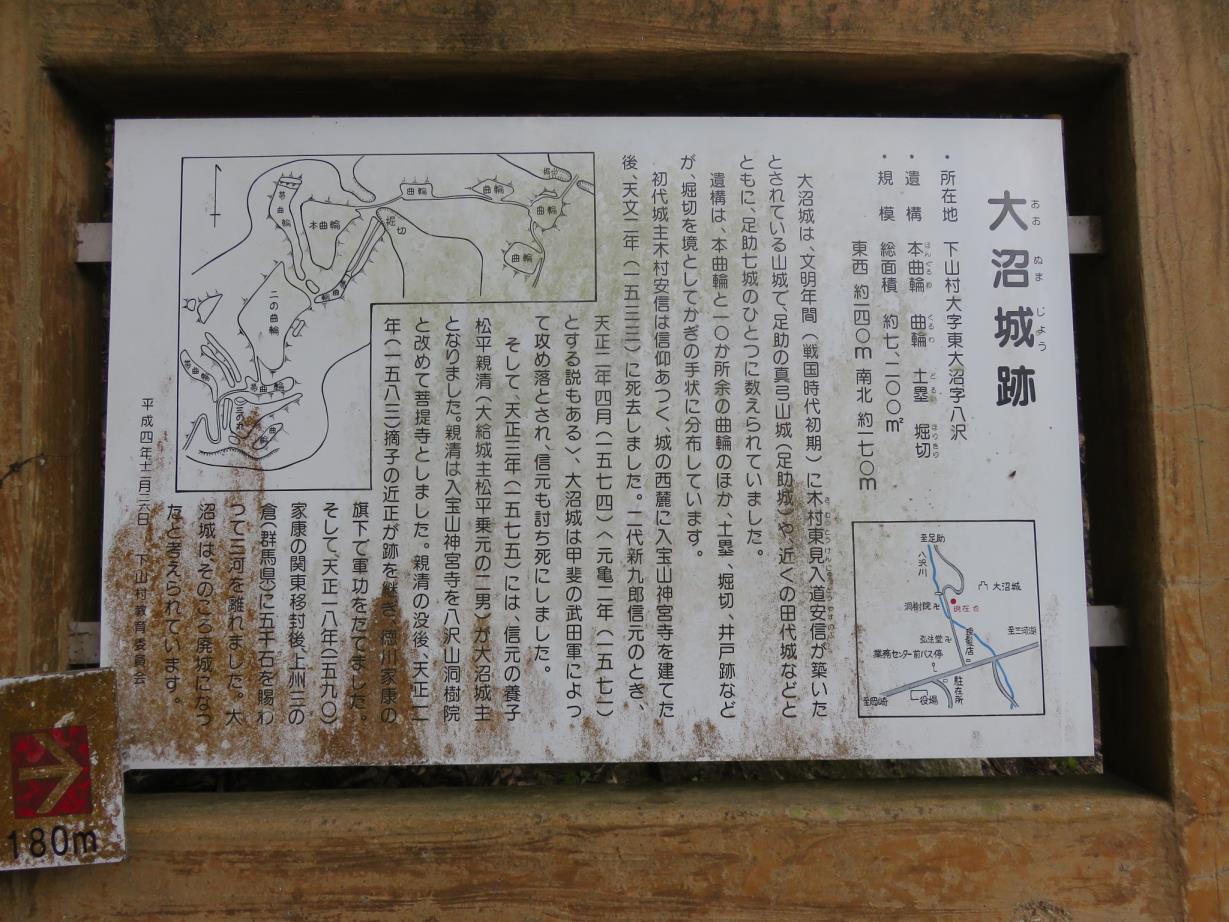 大沼城跡
おお ぬま じょう
・所在地 下山村大字東大沼字八沢
・遺構 本曲輪 曲輪 土塁 堀切
ほんぐるわ くるわ どるい ほりきり
・規模 総面積 約七、二〇〇㎡
東西 約一四〇m 南北 約一七〇m
大沼城は、文明年間(戦国時代初期)に木村東見入道安信が築いた
とされている山城で、足助の真弓山城(足助城)や、近くの田代城などと
ともに、足助七城のひとつに数えられていました。
遺構は、本曲輪と一〇か所余の曲輪のほか、土塁、堀切、井戸跡など
が、堀切を境としてかぎの手状に分布しています。
初代城主木村安信は信仰あつく、城の西麓に入宝山神宮寺を建てた
後、天文二年(一五三三)に死去しました。二代新九郎信元のとき、
天正二年四月(一五七四)〈元亀二年(一五七一)
とする説もある〉、大沼城は甲斐の武田軍によっ
て攻め落とされ、信元も討ち死にしました。
そして、天正三年(一五七五)には、信元の養子
松平親清(大給城主松平乗元の二男)が大沼城主
となりました。親清は入宝山神宮寺を八沢山洞樹院
と改めて菩提寺としました。親清の没後、天正一一
年(一五八三)摘子の近正が跡を継ぎ、徳川家康の
旗下で軍功をたてました。
そして、天正一八年(一五九〇)
家康の関東移封後、上州三の
倉(群馬県)に五千石を賜わ
って三河を離れました。大
沼城は、そのころ廃城になっ
たと考えられています。
平成四年十二月二六日 下山村教育委員会
帯曲輪
本曲輪
曲輪
曲輪
曲輪
曲輪
堀切
堀切
帯曲輪
二の曲輪
帯曲輪
帯曲輪
曲輪
至足助
八沢川
凸 大沼城
洞樹院卍
現在地
弘法堂卍
理髪店
至三河湖
業務センター前バス停
駐在所
役場
至岡崎
180m